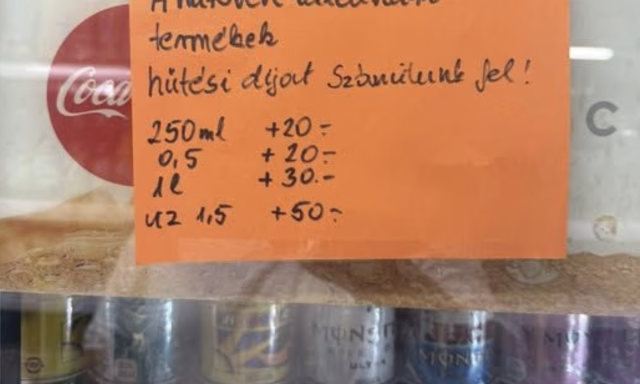 termékek
hűtési díjat számítunk fel!
250ml +20.-
0,5 +20.-
1l +30.-
1,5 +50.-
Coca
C
MONST
ULTR
MONST
MON